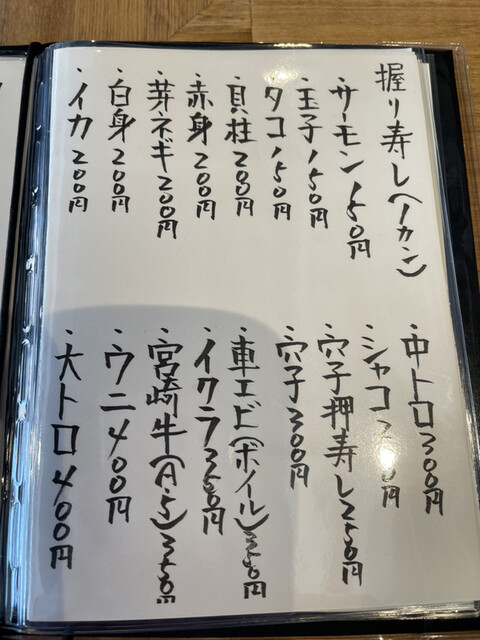 握り寿し(1カン)
・サーモン150円
・玉子150円
・タコ150円
・貝柱200円
・赤身200円
・芽ネギ200円
・白身200円
・イカ200円
・中トロ300円
・シャコ 円
・穴子押寿し250円
・穴子300円
・車エビ(ボイル)350円
・イクラ350円
・宮崎牛(A5)350円
・ウニ400円
・大トロ400円